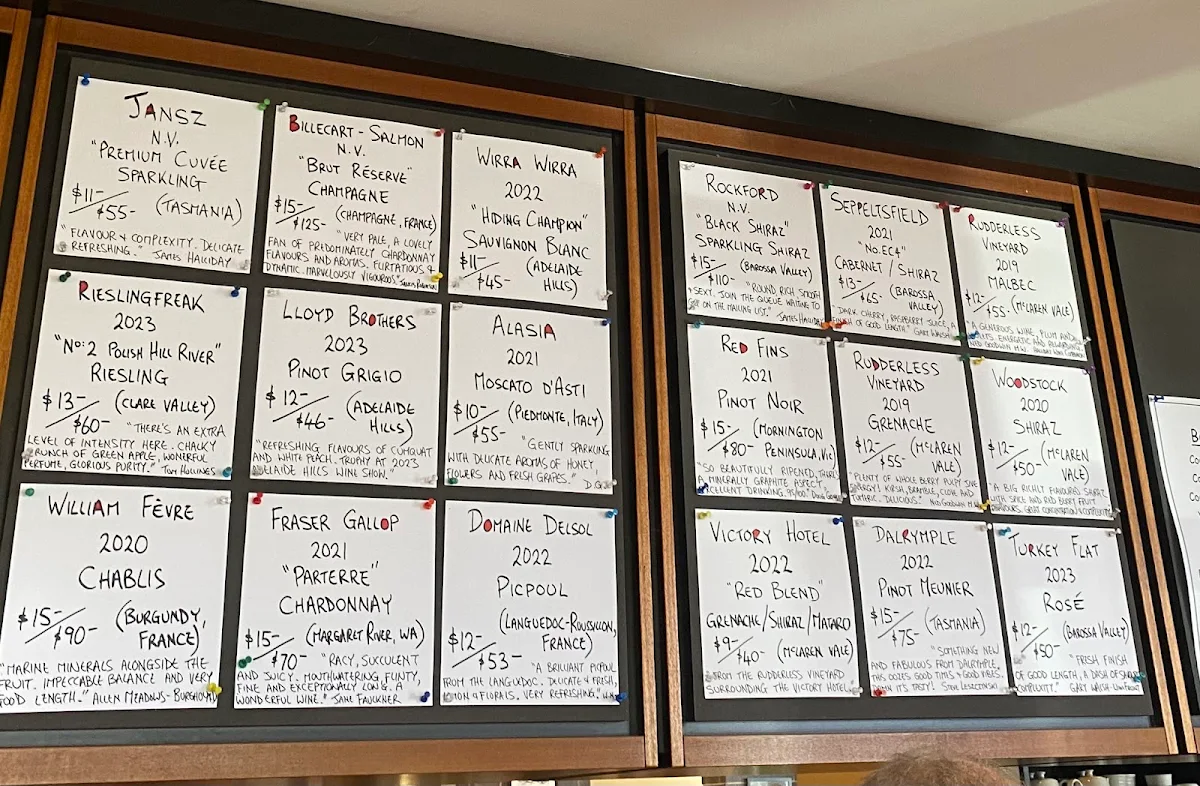 JANSZ
N.V.
"PREMIUM CUVÉE
SPARKLING
$11-/$55- (TASMANIA)
"FLAVOUR & COMPLEXITY. DELICATE
REFRESHING." JAMES HALLIDAY
BILLECART-SALMON
N.V.
"BRUT RÉSERVE"
CHAMPAGNE
$15-/$125- (CHAMPAGNE, FRANCE)
"VERY PALE, A LOVELY
FAN OF PREDOMINATELY CHARDONNAY
FLAVOURS AND AROMAS. FLIRTATIOUS &
DYNAMIC. MARVELOUSLY VIGOUROUS"
WIRRA WIRRA
2022
"HIDING CHAMPION"
SAUVIGNON BLANC
$11-/$45- (ADELAIDE
HILLS)
RIESLINGFREAK
2023
"No: 2 POLISH HILL RIVER"
RIESLING
$13-/$60- (CLARE VALLEY)
"THERE'S AN EXTRA
LEVEL OF INTENSITY HERE. CHALKY
CRUNCH OF GREEN APPLE, WONERFUL
PERFUME, GLORIOUS PURITY." TONY HOLLINGS
LLOYD BROTHERS
2023
PINOT GRIGIO
$12-/$46- (ADELAIDE
HILLS)
"REFRESHING FLAVOURS OF CUMQUAT
AND WHITE PEACH. TROPHY AT 2023
ADELAIDE HILLS WINE SHOW."
ALASIA
2021
MOSCATO D'ASTI
$10-/$55- (PIEDMONTE, ITALY)
"GENTLY SPARKLING
WITH DELICATE AROMAS OF HONEY,
FLOWERS AND FRESH GRAPES."
WILLIAM FÈVRE
2020
CHABLIS
$15-/$90- (BURGUNDY,
FRANCE)
"MARINE MINERALS ALONGSIDE THE
FRUIT. IMPECCABLE BALANCE AND VERY
GOOD LENGTH." ALLEN MEADOWS-BURGHOUND
FRASER GALLOP
2021
"PARTERRE"
CHARDONNAY
$15-/$70- (MARGARET RIVER, WA)
"RACY, SUCCULENT
AND JUICY. MOUTHWATERING, FLINTY,
FINE AND EXCEPTIONALLY LONG. A
WONDERFUL WINE." JANE FAULKNER
DOMAINE DELSOL
2022
PICPOUL
(LANGUEDOC-ROUSSILLON,
FRANCE)
$12-/$53-
"A BRILLIANT PICPOUL
FROM THE LANGUEDOC. DELICATE & FRESH,
LEMON & FLORALS. VERY REFRESHING."
ROCKFORD
N.V.
"BLACK SHIRAZ"
SPARKLING SHIRAZ
$15-/$110- (BAROSSA VALLEY)
"ROUND RICH SMOOTH
& SEXY. JOIN THE QUEUE WAITING TO
GET ON THE MAILING LIST." JAMES HALLIDAY
SEPPELTSFIELD
2021
"No. EC4"
CABERNET/SHIRAZ
$13-/$65- (BAROSSA
VALLEY)
"DARK CHERRY, RASPBERRY JUICE, A
FINISH OF GOOD LENGTH" GARY WALSH
RUDDERLESS
VINEYARD
2019
MALBEC
$12-/$55- (McLAREN VALE)
"A GENEROUS WINE, PLUM AND
ENERGETIC AND
RED FINS
2021
PINOT NOIR
$15-/$80- (MORNINGTON
PENINSULA, VIC)
"SO BEAUTIFULLY RIPENED, THERE'S
A MINERALLY GRAPHITE ASPECT,
EXCELLENT DRINKING.
RUDDERLESS
VINEYARD
2019
GRENACHE
$12-/$55- (McLAREN
VALE)
"PLENTY OF WHOLE BERRY PULPY
KIRSH, BRAMBLE, CLOVE AND
DELICIOUS."
WOODSTOCK
2020
SHIRAZ
$12-/$50- (McLAREN
VALE)
A BIG RICHLY FLAVOURED SHIRAZ
WITH SPICE AND RED BERRY FRUIT
FLAVOURS. GREAT CONCENTRATION & COMPLEXITY.
VICTORY HOTEL
2022
"RED BLEND"
GRENACHE/SHIRAZ/MATARO
$9-/$40- (McLAREN VALE)
"FROM THE RUDDERLESS VINEYARD
SURROUNDING THE VICTORY HOTEL
DALRYMPLE
2022
PINOT MEUNIER
$15-/$75- (TASMANIA)
"SOMETHING NEW
AND FABULOUS FROM DALRYMPLE.
THIS OOZES GOOD TIMES & GOOD VIBES.
DAMN ITS TASTY!
TURKEY FLAT
2023
ROSÉ
$12-/$50- (BAROSSA VALLEY)
"FRESH FINISH
OF GOOD LENGTH, A DASH OF
COMPLEXITY." GARY WALSH